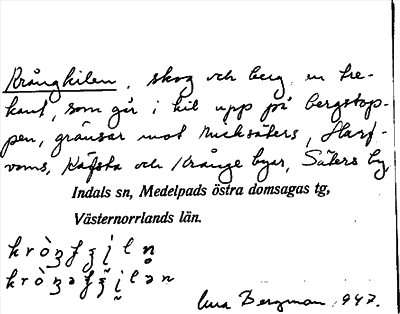 Krångkilen, skog och berg, en tre-
kant, som går i kil upp på bergstop-
pen, gränsar mot Nicksäters, Harf-
voms, Käfsta och Krånge byar, Säters by
Indals sn, Medelpads östra domsagas tg,
Västernorrlands län.
Bergman 1947.